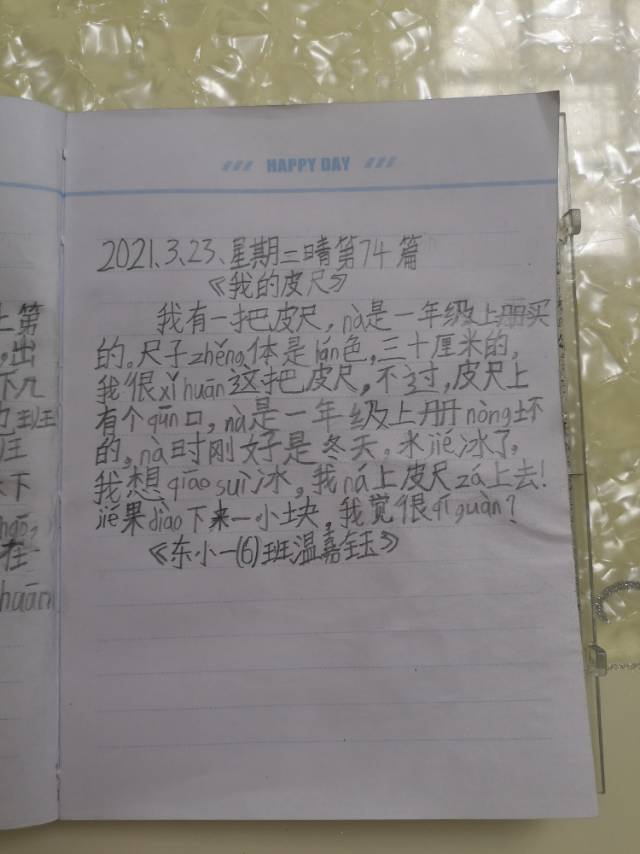 HAPPY DAY
2021.3.23、星期二晴第74篇
《我的皮尺》
我有一把皮尺，nà是一年级上册买
的。尺子zhěng体是lán色，三十厘米的。
我很xǐhuān这把皮尺，不过，皮尺上
有个qūn口，nà是一年级上册nòng坏
的，nà时刚好是冬天。水jié冰了，
我想qiāo suì冰，我ná上皮尺zá上去！
jié果diào下来一小块，我觉很qíguàn？
《东小一(6)班温嘉钰》
上第
，出
下几
班
下
在
huān